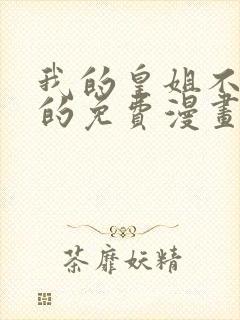 我的皇姐不
的免费漫畫
荼靡妖精